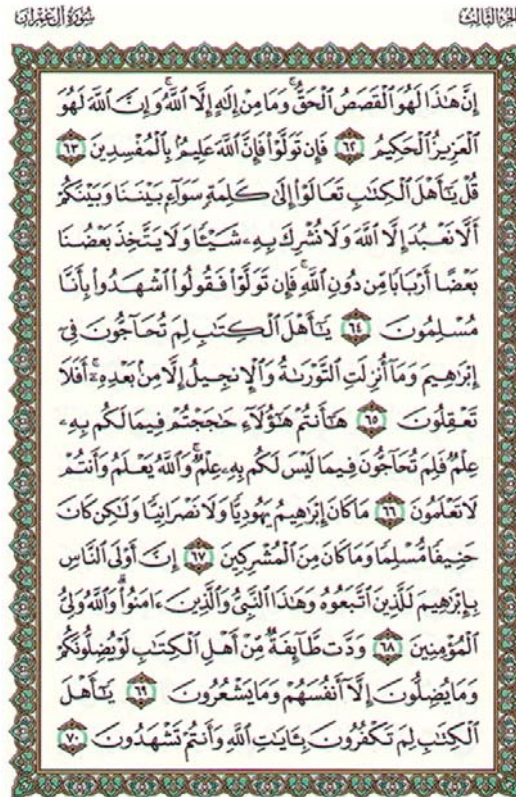 الجزء الثالث
سورة آل عمران
إِنَّ هَٰذَا لَهُوَ الْقَصَصُ الْحَقُّ ۚ وَمَا مِنْ إِلَٰهٍ إِلَّا اللَّهُ ۚ وَإِنَّ اللَّهَ لَهُوَ
الْعَزِيزُ الْحَكِيمُ ٦٢ فَإِن تَوَلَّوْا فَإِنَّ اللَّهَ عَلِيمٌ بِالْمُفْسِدِينَ ٦٣
قُلْ يَا أَهْلَ الْكِتَابِ تَعَالَوْا إِلَىٰ كَلِمَةٍ سَوَاءٍ بَيْنَنَا وَبَيْنَكُمْ
أَلَّا نَعْبُدَ إِلَّا اللَّهَ وَلَا نُشْرِكَ بِهِ شَيْئًا وَلَا يَتَّخِذَ بَعْضُنَا
بَعْضًا أَرْبَابًا مِّن دُونِ اللَّهِ ۚ فَإِن تَوَلَّوْا فَقُولُوا اشْهَدُوا بِأَنَّا
مُسْلِمُونَ ٦٤ يَا أَهْلَ الْكِتَابِ لِمَ تُحَاجُّونَ فِي
إِبْرَاهِيمَ وَمَا أُنزِلَتِ التَّوْرَاةُ وَالْإِنجِيلُ إِلَّا مِن بَعْدِهِ ۚ أَفَلَا
تَعْقِلُونَ ٦٥ هَا أَنتُمْ هَٰؤُلَاءِ حَاجَجْتُمْ فِيمَا لَكُم بِهِ
عِلْمٌ فَلِمَ تُحَاجُّونَ فِيمَا لَيْسَ لَكُم بِهِ عِلْمٌ ۚ وَاللَّهُ يَعْلَمُ وَأَنتُمْ
لَا تَعْلَمُونَ ٦٦ مَا كَانَ إِبْرَاهِيمُ يَهُودِيًّا وَلَا نَصْرَانِيًّا وَلَٰكِن كَانَ
حَنِيفًا مُّسْلِمًا وَمَا كَانَ مِنَ الْمُشْرِكِينَ ٦٧ إِنَّ أَوْلَى النَّاسِ
بِإِبْرَاهِيمَ لَلَّذِينَ اتَّبَعُوهُ وَهَٰذَا النَّبِيُّ وَالَّذِينَ ءَامَنُوا ۗ وَاللَّهُ وَلِيُّ
الْمُؤْمِنِينَ ٦٨ وَدَّت طَّائِفَةٌ مِّنْ أَهْلِ الْكِتَابِ لَوْ يُضِلُّونَكُمْ
وَمَا يُضِلُّونَ إِلَّا أَنفُسَهُمْ وَمَا يَشْعُرُونَ ٦٩ يَا أَهْلَ
الْكِتَابِ لِمَ تَكْفُرُونَ بِـَٔايَاتِ اللَّهِ وَأَنتُمْ تَشْهَدُونَ ٧٠